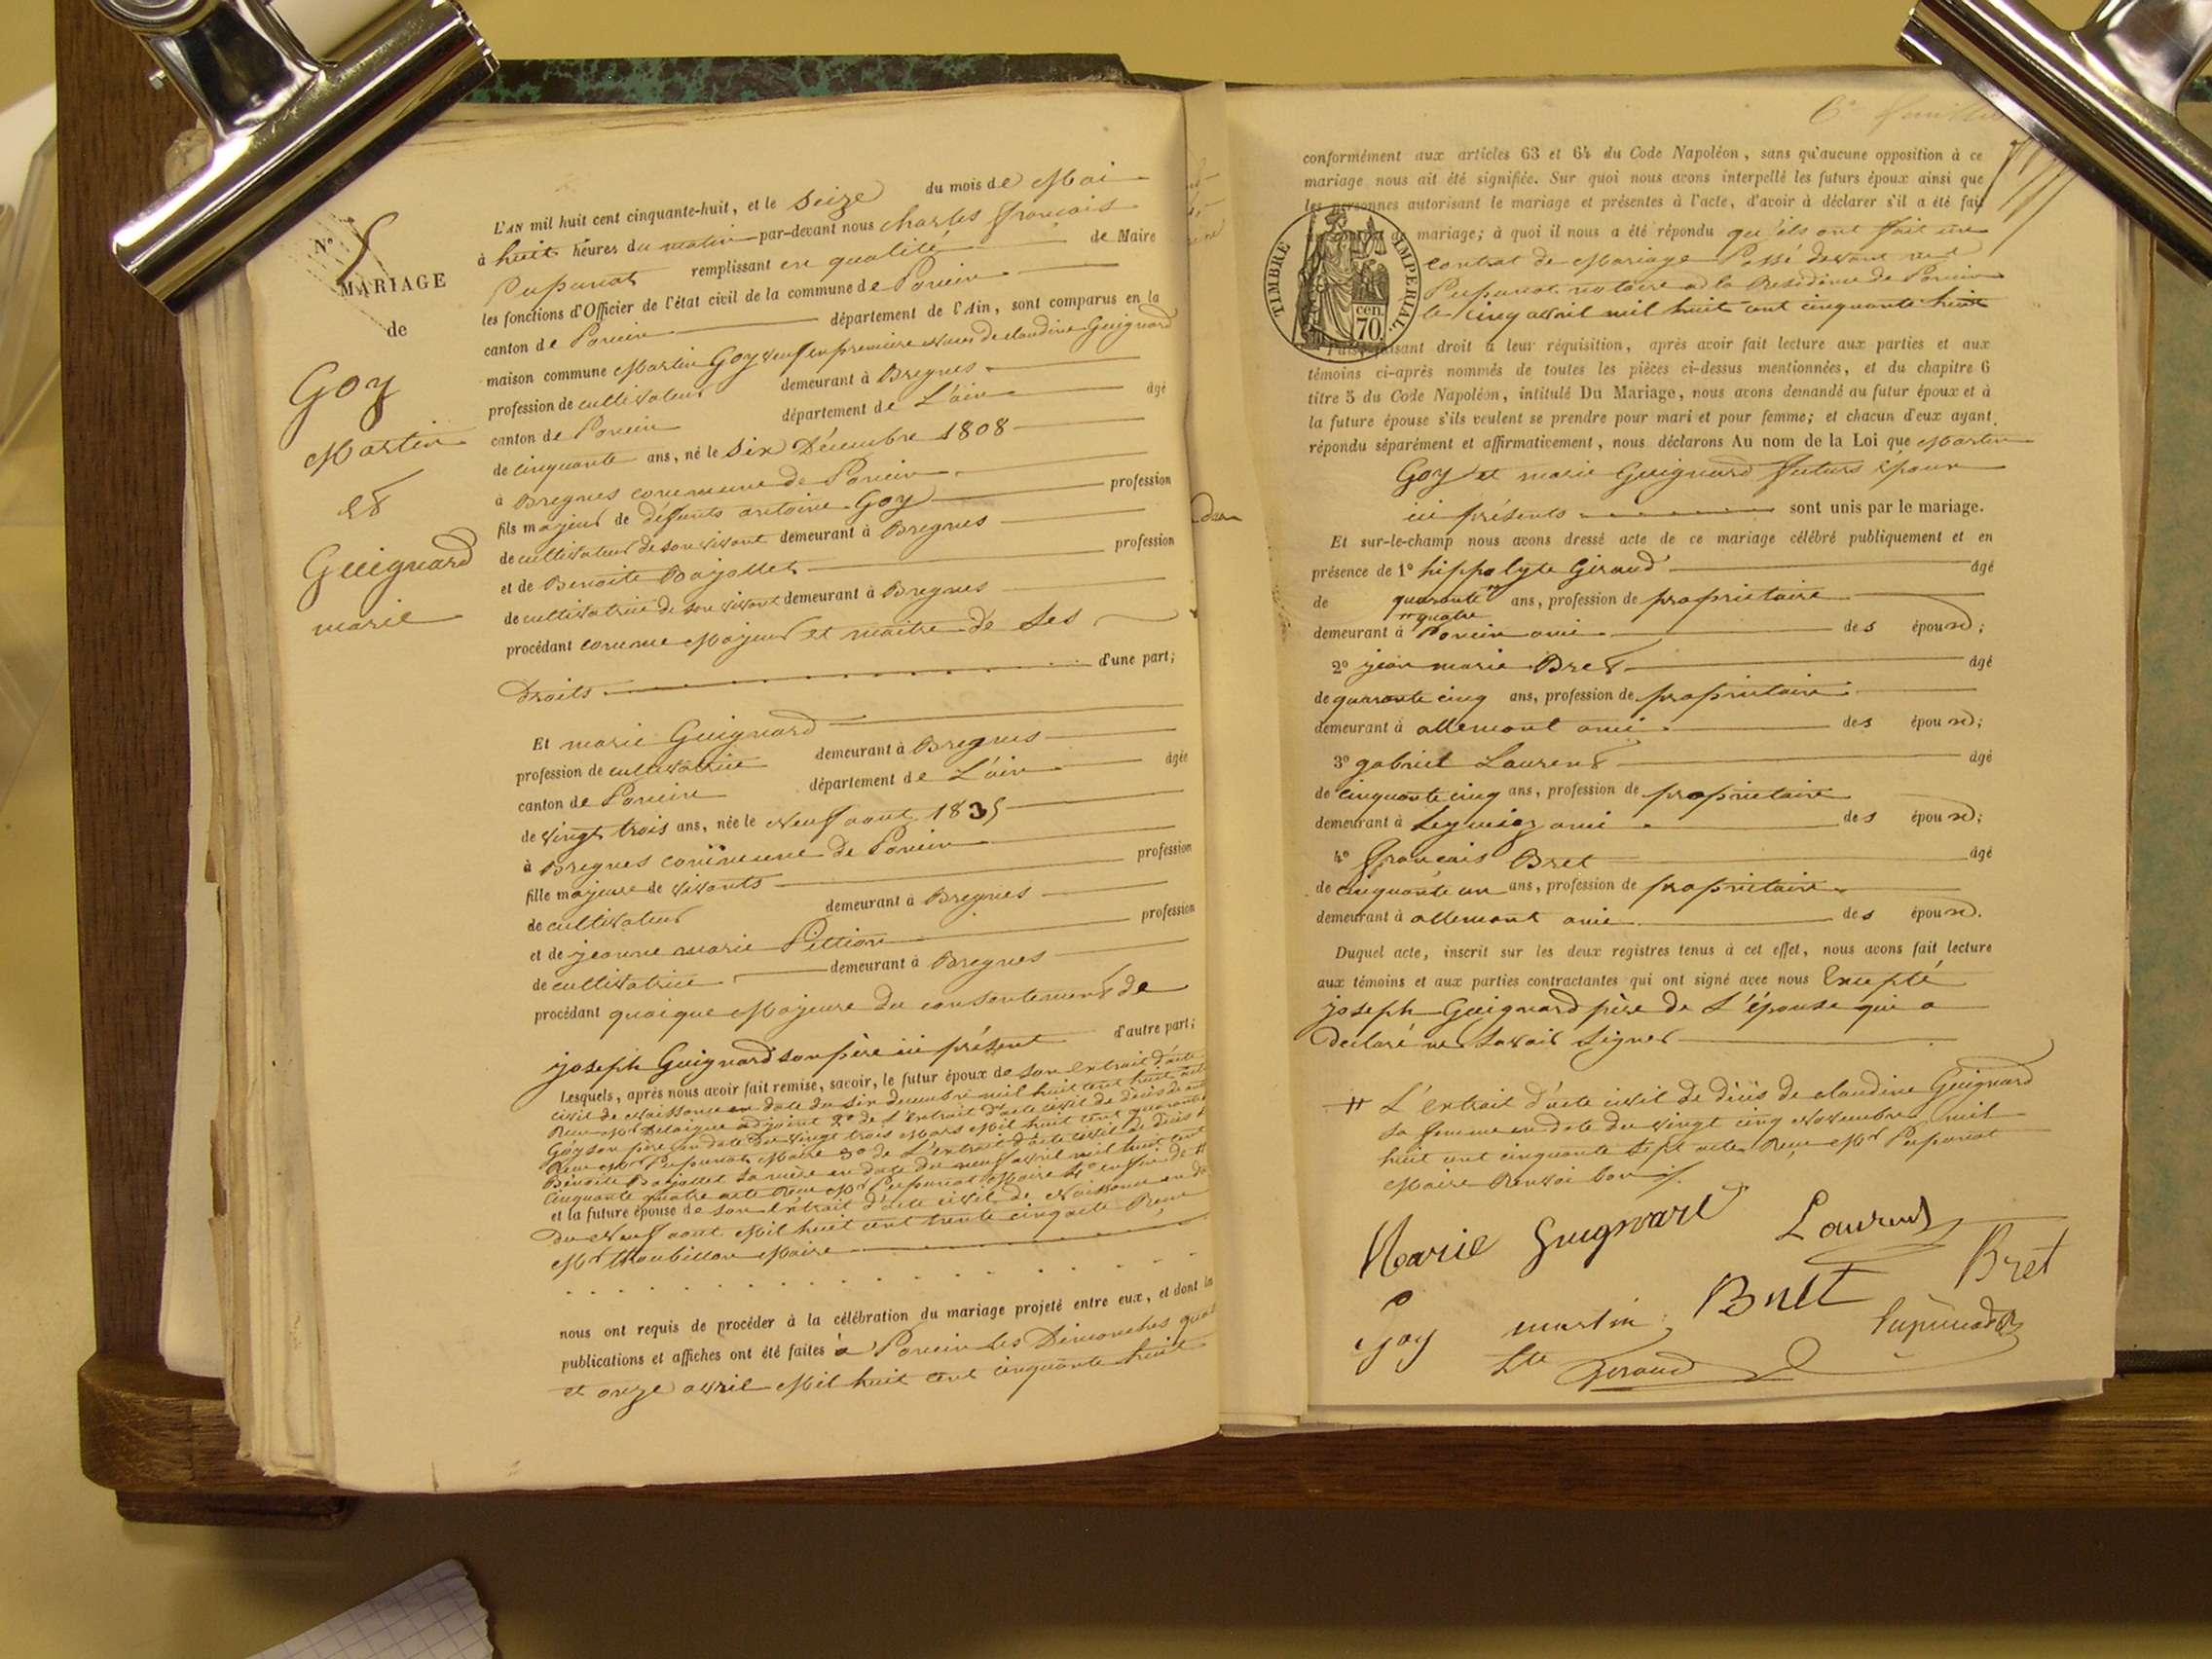 N° 5
MARIAGE
de
Goy
Martin
et
Guignard
marie
L'AN mil huit cent cinquante-huit, et le Seize du mois de Mai
à huit heures du matin par-devant nous charles francois
Pupunat remplissant en qualité de Maire
les fonctions d'Officier de l'état civil de la commune de Poncin
canton de Poncin département de l'Ain, sont comparus en la
maison commune Martin Goy veuf en premiere noces de claudine Guignard
profession de cultivateur demeurant à Bregnes
canton de Poncin département de L'ain âgé
de cinquante ans, né le Six Décembre 1808
à Bregnes commune de Poncin
fils majeur de défunts antoine Goy profession
de cultivateur de son vivant demeurant à Bregnes
et de Benoite Bajollet profession
de cultivatrice de son vivant demeurant à Bregnes
procédant comme Majeur et maitre de Ses
Droits d'une part;
Et marie Guignard
profession de cultivatrice demeurant à Bregnes
canton de Poncin département de L'ain âgée
de vingt trois ans, née le Neuf aout 1835
à Bregnes commune de Poncin
fille majeure de vivants profession
de cultivateur demeurant à Bregnes
et de jeanne marie Pittion profession
de cultivatrice demeurant à Bregnes
procédant quoique Majeure du consentement de
joseph Guignard son père ici présent d'autre part;
Lesquels, après nous avoir fait remise, savoir, le futur époux de son Extrait d'acte
civil de Naissance en date du six decembre mil huit cent huit acte
Reçu Mr Delaigue adjoint 2° de l'extrait d'acte civil de décès de
Goy son père en date du vingt trois Mars Mil huit cent quarante
Reçu Mr Pupunat Maire 3° de L'extrait d'acte civil de décès
Benoite Bajollet sa mère en date du neuf avril mil huit cent
Cinquante quatre acte Reçu Mr Pupunat Maire 4° enfin de #
et la future épouse de son Extrait d'acte civil de Naissance en
Du Neuf aout Mil huit cent trente cinq acte Reçu
Mr Maire
nous ont requis de procéder à la célébration du mariage projeté entre eux, et dont la
publications et affiches ont été faites à Poncin les Dimanches
et onze avril Mil huit cent cinquante huit
conformément aux articles 63 et 64 du Code Napoléon, sans qu'aucune opposition à ce
mariage nous ait été signifiée. Sur quoi nous avons interpellé les futurs époux ainsi que
les personnes autorisant le mariage et présentes à l'acte, d'avoir à déclarer s'il a été fait
un contrat de mariage; à quoi il nous a été répondu qu'ils ont fait un
contrat de Mariage Passé devant me
Pupunat notaire a la Residence de Poncin
le cinq avril mil huit cent cinquante huit
TIMBRE IMPERIAL.
70 cen.
Puis, faisant droit à leur réquisition, après avoir fait lecture aux parties et aux
témoins ci-après nommés de toutes les pièces ci-dessus mentionnées, et du chapitre 6
titre 5 du Code Napoléon, intitulé Du Mariage, nous avons demandé au futur époux et à
la future épouse s'ils veulent se prendre pour mari et pour femme; et chacun d'eux ayant
répondu séparément et affirmativement, nous déclarons Au nom de la Loi que Martin
Goy et marie Guignard futurs époux
ici présents sont unis par le mariage.
Et sur-le-champ nous avons dressé acte de ce mariage célébré publiquement et en
présence de 1° hippolyte Giraud âgé
de quarante quatre ans, profession de propriétaire
demeurant à Poncin ami des époux;
2° jean marie Bret âgé
de quarante cinq ans, profession de propriétaire
demeurant à allement ami des époux;
3° gabriel Laurent âgé
de cinquante cinq ans, profession de propriétaire
demeurant à Leymiaz ami des époux;
4° francais Bret âgé
de cinquante un ans, profession de propriétaire
demeurant à allement ami des époux.
Duquel acte, inscrit sur les deux registres tenus à cet effet, nous avons fait lecture
aux témoins et aux parties contractantes qui ont signé avec nous Excepté
joseph Guignard père de L'épouse qui a
déclaré ne savoir signer
# L'extrait d'acte civil de décès de claudine Guignard
sa femme en date du vingt cinq Novembre mil
huit cent cinquante Sept acte Reçu Mr Pupunat
Maire Renvoi bon
Marie Guignard Laurent
Bret Bret
Goy martin Pupunat
hte Giraud